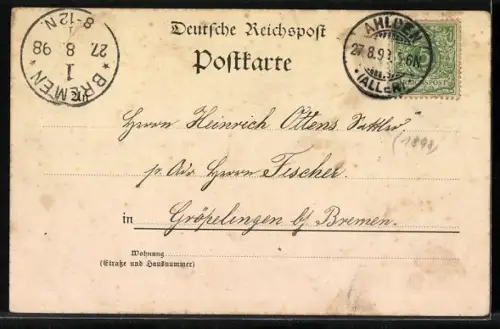 Deutsche Reichspost
Postkarte
BREMEN
1
27. 8. 98
8-12N
AHLDEN
27.8.98 5-6N
(ALLER)
Herrn Heinrich Ottens, Sattler
(1898)
p. Adr. Herrn Fischer
in Gröpelingen b/ Bremen.
Wohnung
(Straße und Hausnummer)